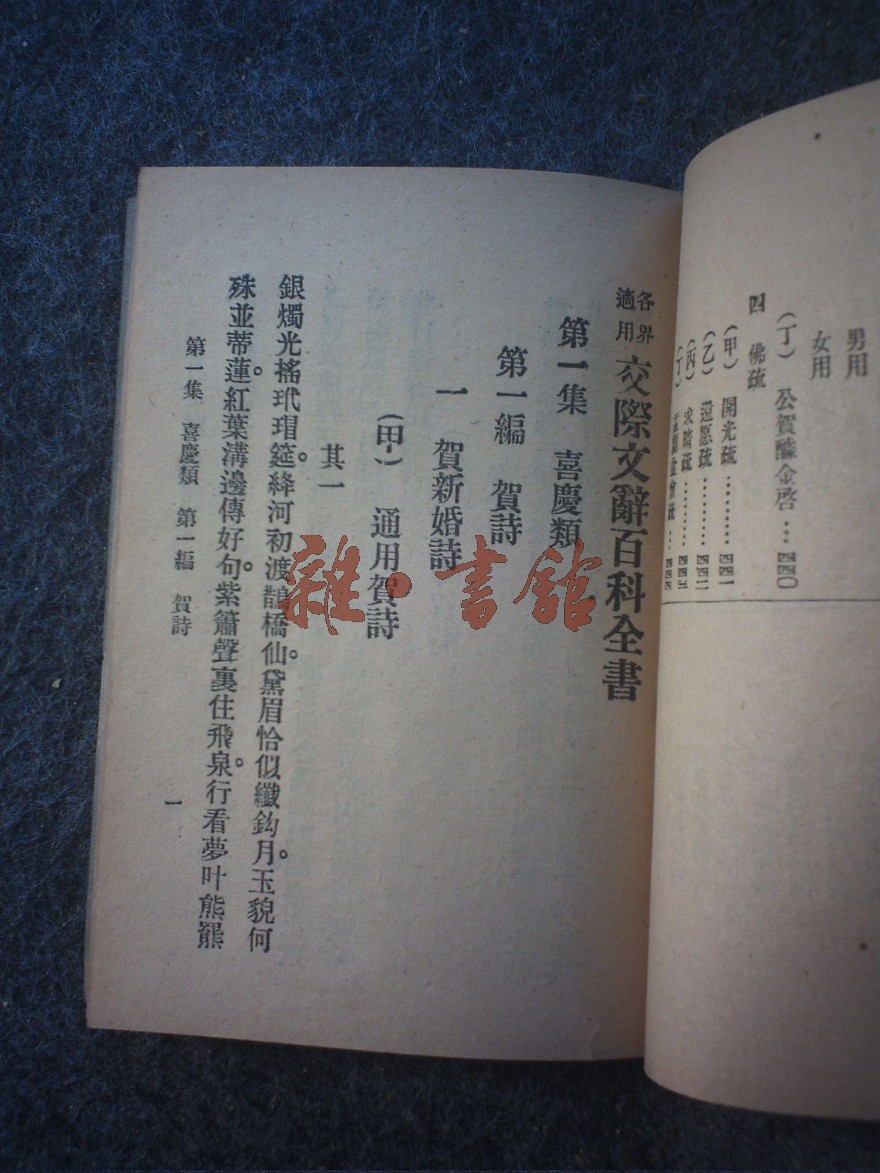 男用
女用
(丁) 公賀醵金啓…四四〇
四 佛疏
(甲) 開光疏………四四一
(乙) 還愿疏………四四二
(丙) 求嗣疏………四四三
各界適用 交際文辭百科全書
第一集 喜慶類
第一編 賀詩
一 賀新婚詩
(甲) 通用賀詩
其一
銀燭光搖玳瑁筵。絳河初渡鵲橋仙。黛眉恰似纖鈎月。玉貌何
殊並蒂蓮。紅葉溝邊傳好句。紫簫聲裏住飛泉。行看夢叶熊羆
第一集 喜慶類 第一編 賀詩
一
雜·書館